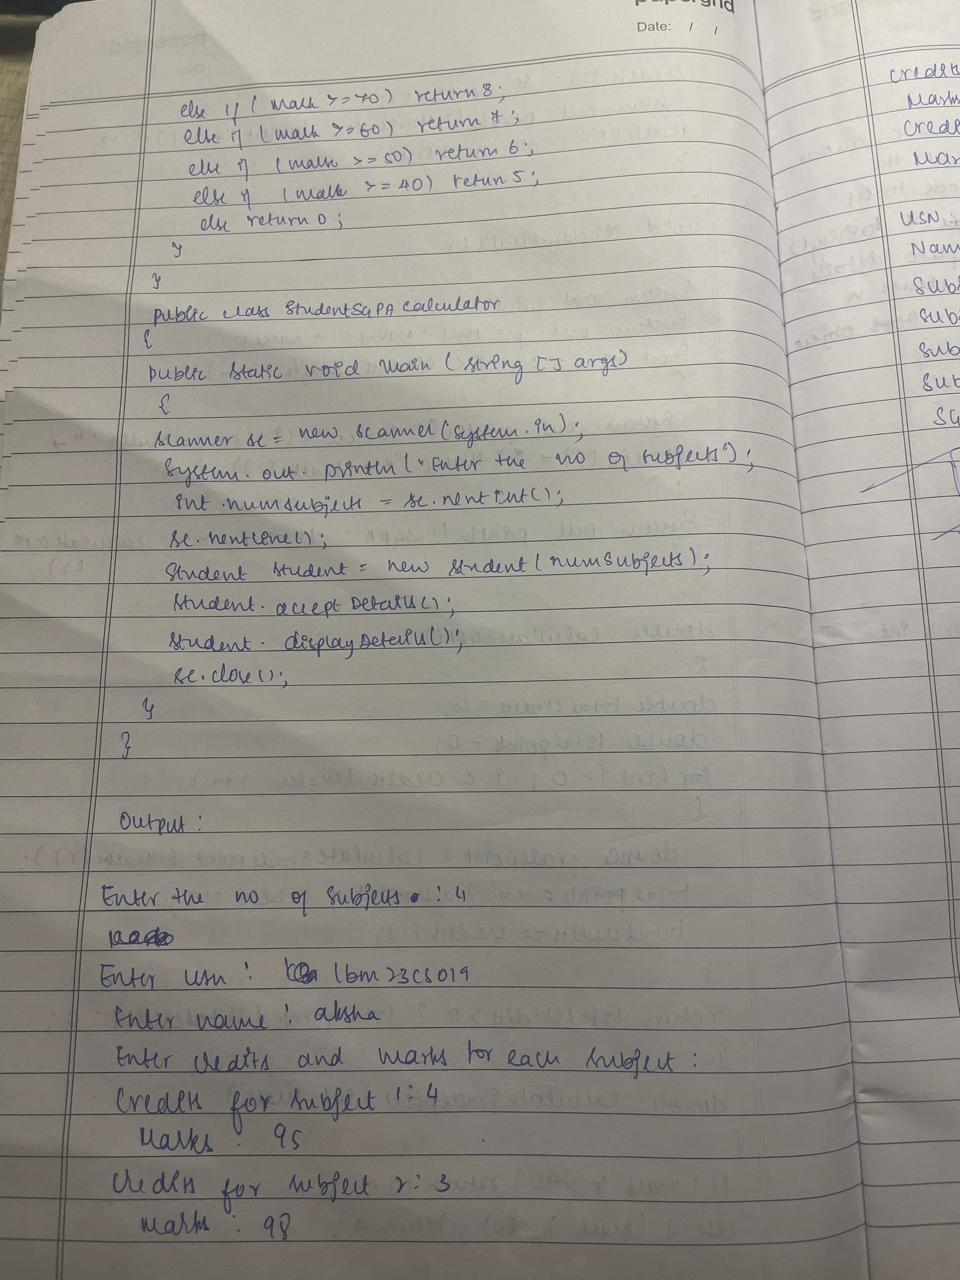 papergrid
Date: / /
else if ( mark >=70) return 8;
else if (mark >=60) return 7;
else if (mark >= 50) return 6;
else if (mark >= 40) return 5;
else return 0;
}
}
public class StudentSGPA calculator
{
public static void main ( String [] args)
{
Scanner sc = new Scanner(System.in);
System.out.println("Enter the no of subjects");
int numsubjects = sc.nextInt();
sc.nextLine();
Student student = new student(numSubjects);
Student.acceptDetails();
Student.displayDetails();
sc.close();
}
}
Output:
Enter the no of subjects: 4
Enter usn: 1bm23CS019
Enter name: aksha
Enter credits and marks for each subject:
Credits for subject 1: 4
Marks: 95
Credits for subject 2: 3
Marks: 98
credits
Marks
Credi
Mar
USN
Nam
Subj
Subj
Sub
Sub
SG